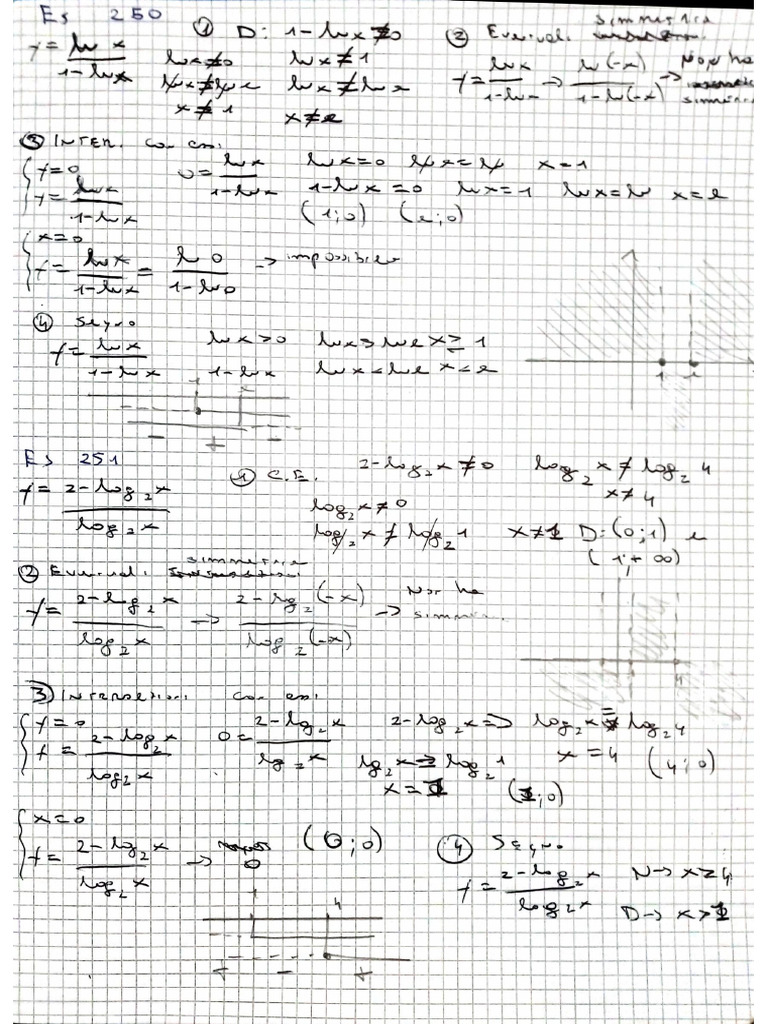 Es 250
① D: 1-lnx≠0
y = lnx / 1-lnx
lnx≠0 lnx≠1
lnx≠ln1 lnx≠lne
x≠1 x≠e
② Eventual. simmetria
y = lnx / 1-lnx → ln(-x) / 1-ln(-x) → Non ha simmetria
③ INTER. con assi
y=0
y = lnx / 1-lnx
0 = lnx / 1-lnx lnx=0 x=1
1-lnx=0 lnx=1 x=e
(1;0) (e;0)
x=0
y = lnx / 1-lnx = ln0 / 1-ln0 → impossibile
1 e
④ Segno
y = lnx / 1-lnx
lnx>0 x≥1
1-lnx lnx<lne x<e
1 e
- + -
Es 251
y = 2-log₂x / log₂x
① C.E. 2-log₂x≠0 log₂x≠log₂4
x≠4
log₂x≠0
log₂x≠log₂1 x≠1 D:(0;1) e
(1;+∞)
② Eventuali simmetrie
y = 2-log₂x / log₂x → 2-lg₂(-x) / log₂(-x) → Non ha
simmetr.
4
③ Intersezioni con assi
y=0
y = 2-log₂x / log₂x
0 = 2-log₂x / lg₂x 2-log₂x=0 log₂x=log₂4
x=4 (4;0)
lg₂x=log₂1
x=1 (1;0)
x=0
y = 2-log₂x / log₂x → 0 (0;0)
④ Segno
y = 2-log₂x / log₂x N→x≥4
D→x>1
1 4
+ - +